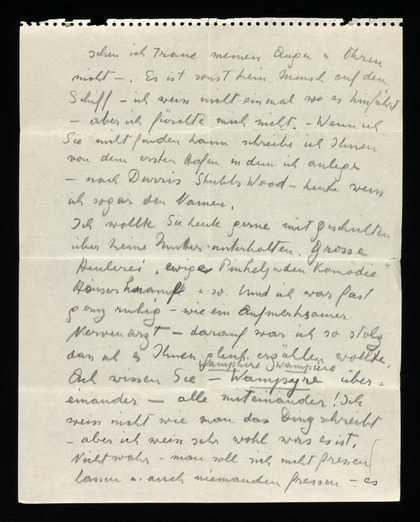 schen ich Traue meinen Augen u Ohren
nicht –. Es ist sonst kein Mensch auf dem
Schiff – ich weiss nicht einmal wo es hinfährt
– aber ich fürchte mich nicht. – Wenn ich
Sie nicht finden kann schreibe ich Ihnen
von dem ersten Hafen in dem ich anlege
– nach Stubbs Wood – heute weiss
ich sogar den Namen.
Ich wollte Sie heute gerne mit Geschichten
über meine Mutter unterhalten. Grosse
Heulerei, "ewige Komödie"
u.s.w. Und ich war fast
ganz ruhig – wie ein aufmerksamer
Nervenarzt – darauf war ich so stolz
dass ich es Ihnen gleich erzählen wollte.
Vamphire Wampiere
Ach wissen Sie – Wampyre über-
einander – alle miteinander! Ich
weiss nicht wie man das Ding schreibt
– aber ich weiss sehr wohl was es ist.
Nicht wahr – man soll sich nicht fressen
lassen u. auch niemanden fressen – es